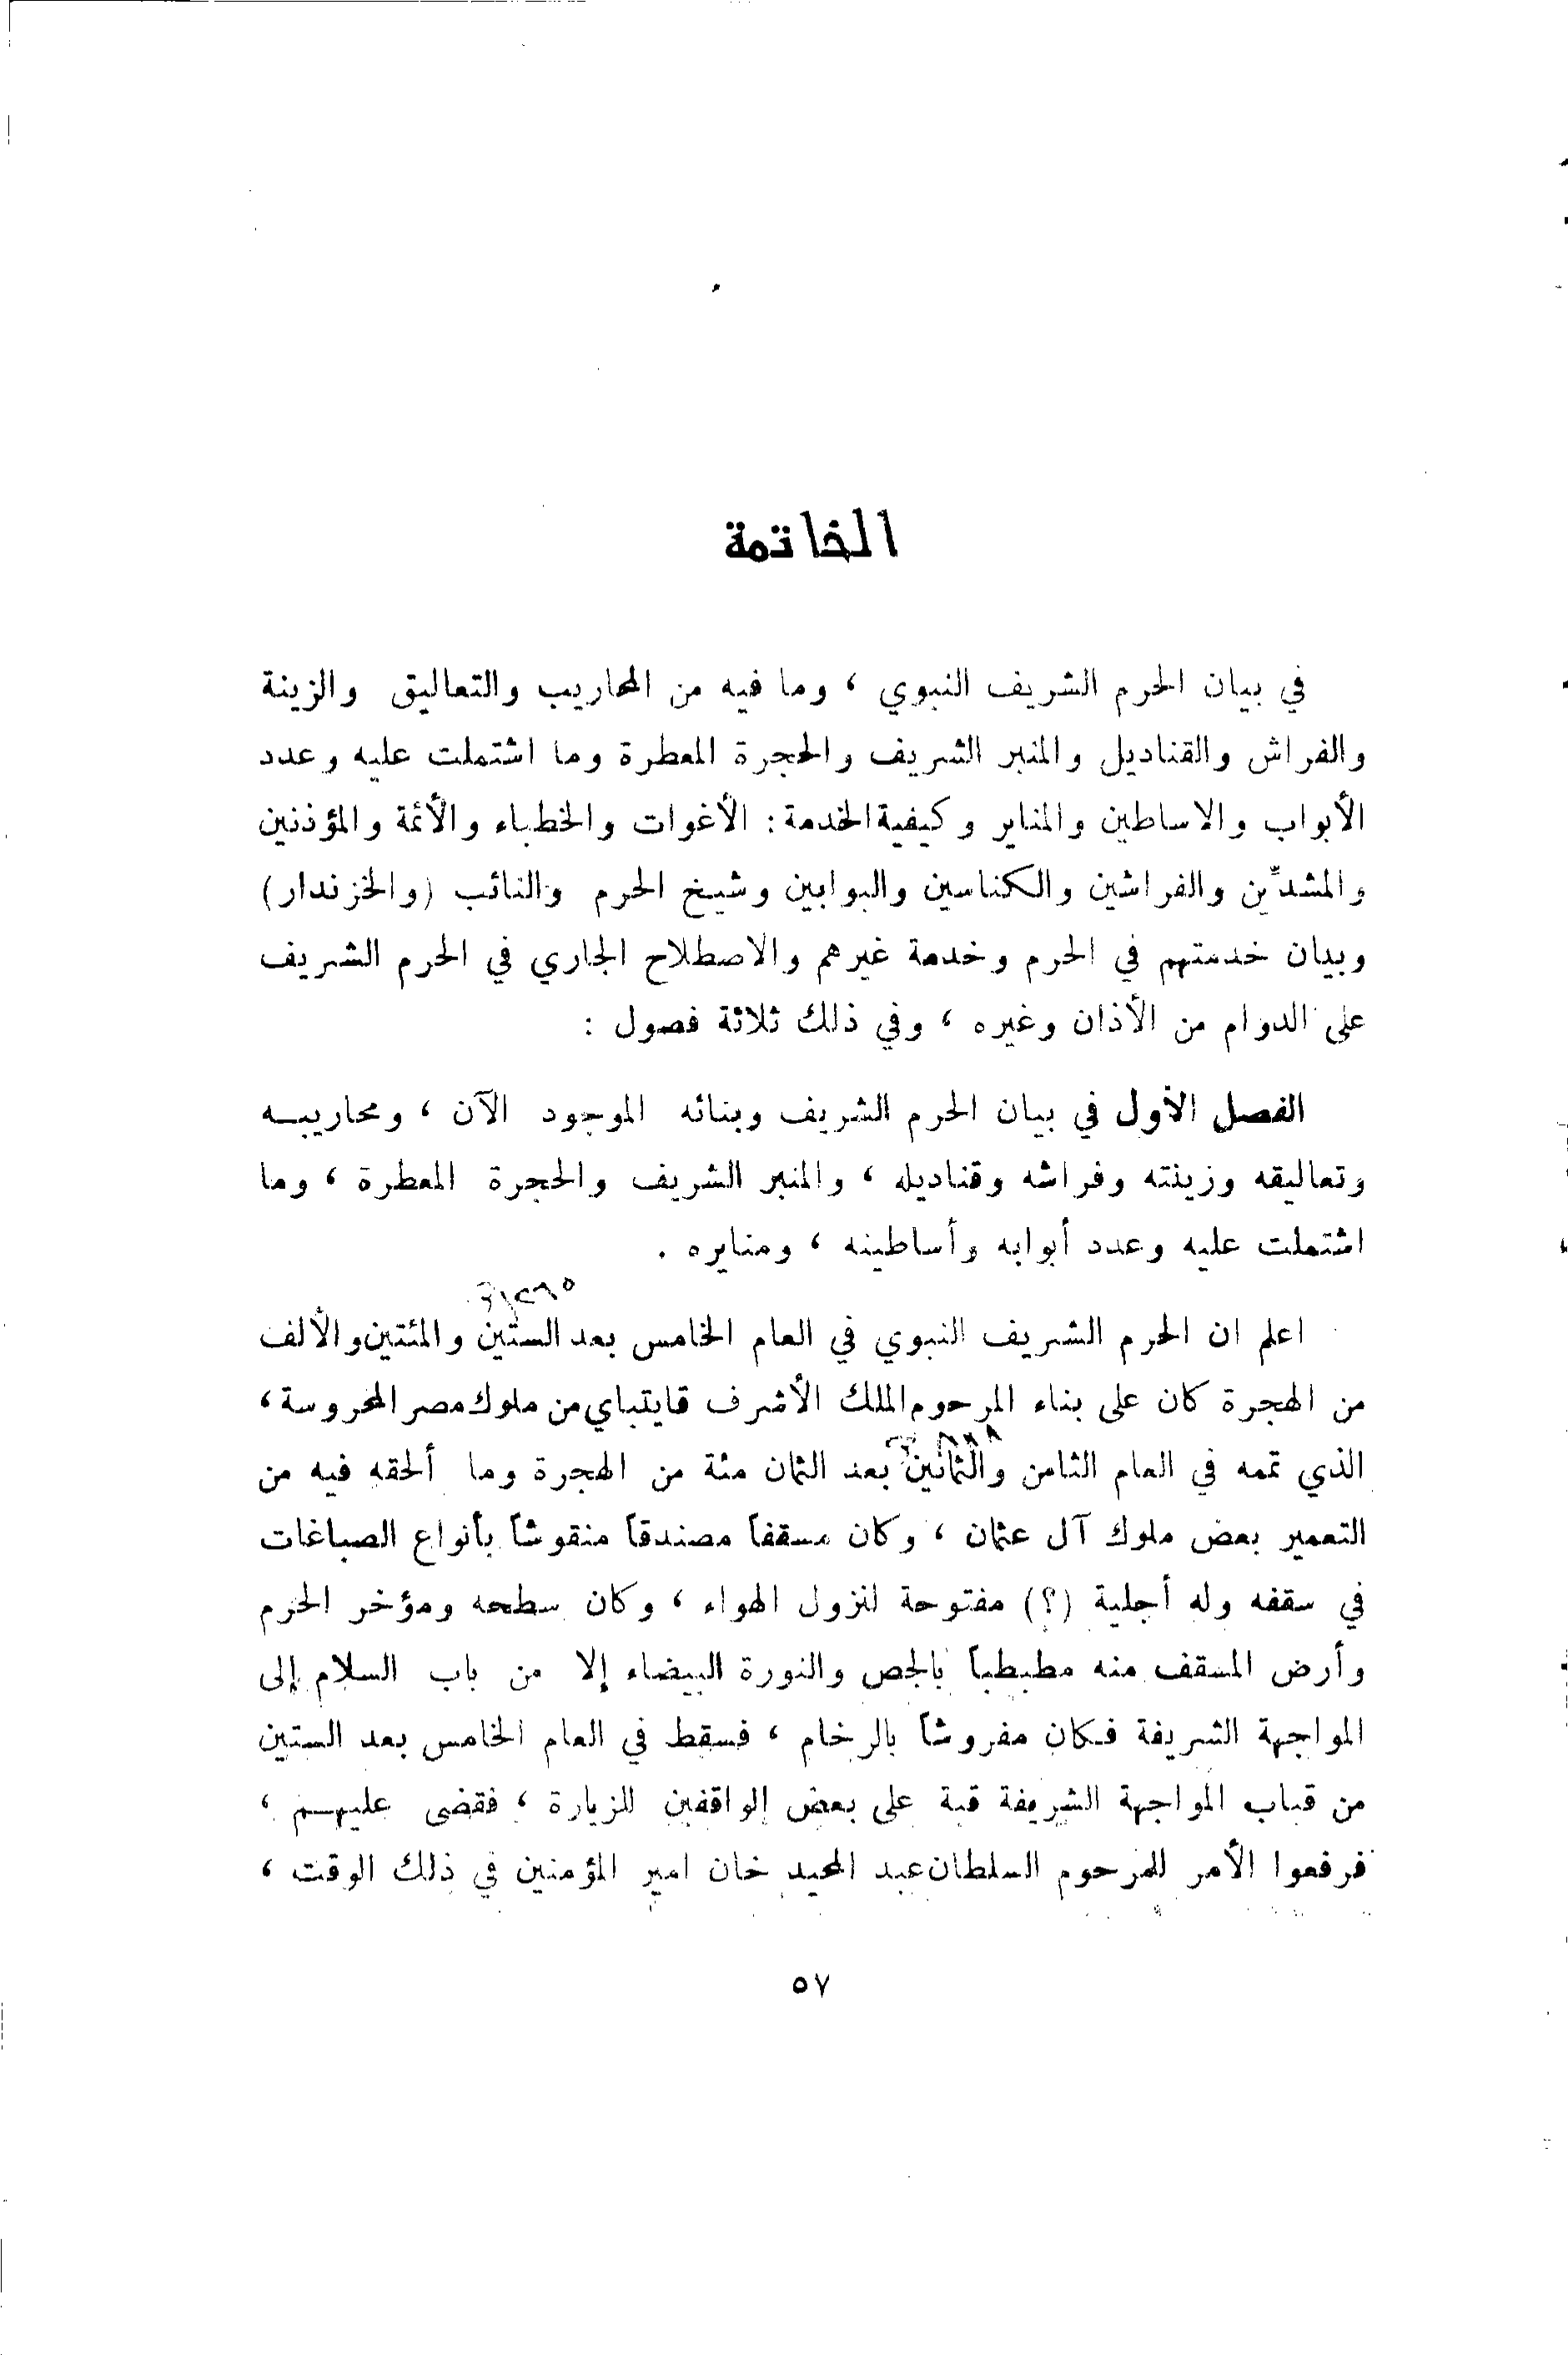 الخاتمة
في بيان الحرم الشريف النبوي ، وما فيه من المحاريب والتعاليق والزينة
والفراش والقناديل والمنبر الشريف والحجرة المعطرة وما اشتملت عليه وعدد
الأبواب والاساطين والمناير وكيفية الخدمة : الأغوات والخطباء والأئمة والمؤذنين
والمشدِّين والفراشين والكناسين والبوابين وشيخ الحرم والنائب (والخزندار)
وبيان خدمتهم في الحرم وخدمة غيرهم والاصطلاح الجاري في الحرم الشريف
على الدوام من الأذان وغيره ، وفي ذلك ثلاثة فصول :
الفصل الأول في بيان الحرم الشريف وبنائه الموجود الآن ، ومحاريبه
وتعاليقه وزينته وفراشه وقناديله ، والمنبر الشريف والحجرة المعطرة ، وما
اشتملت عليه وعدد أبوابه وأساطينه ، ومنايره .
١٢٦٥
اعلم ان الحرم الشريف النبوي في العام الخامس بعد الستين والمئتين والألف
من الهجرة كان على بناء المرحوم الملك الأشرف قايتباي من ملوك مصر المحروسة ،
٨٨٨
الذي تممه في العام الثامن والثمانين بعد الثمان مئة من الهجرة وما ألحقه فيه من
التعمير بعض ملوك آل عثمان ، وكان مسقفاً مصندقاً منقوشاً بأنواع الصباغات
في سقفه وله أجلية (؟) مفتوحة لنزول الهواء ، وكان سطحه ومؤخر الحرم
وأرض المسقف منه مطبطباً بالجص والنورة البيضاء إلا من باب السلام إلى
المواجهة الشريفة فكان مفروشاً بالرخام ، فسقط في العام الخامس بعد الستين
من قباب المواجهة الشريفة قبة على بعض الواقفين للزيارة ، فقضى عليهم ،
فرفعوا الأمر للمرحوم السلطان عبد المجيد خان امير المؤمنين في ذلك الوقت ،
٥٧